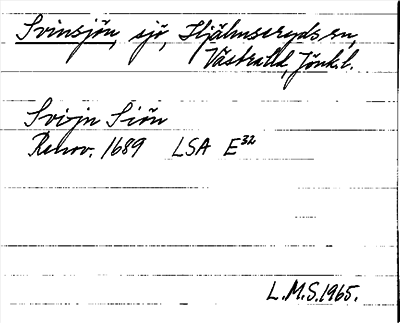 Svinsjön, sjö, Hjälmseryds sn,
Västra hd, Jönk. l.
Svijn Siön
Renov. 1689 LSA E32
L.M.S. 1965.